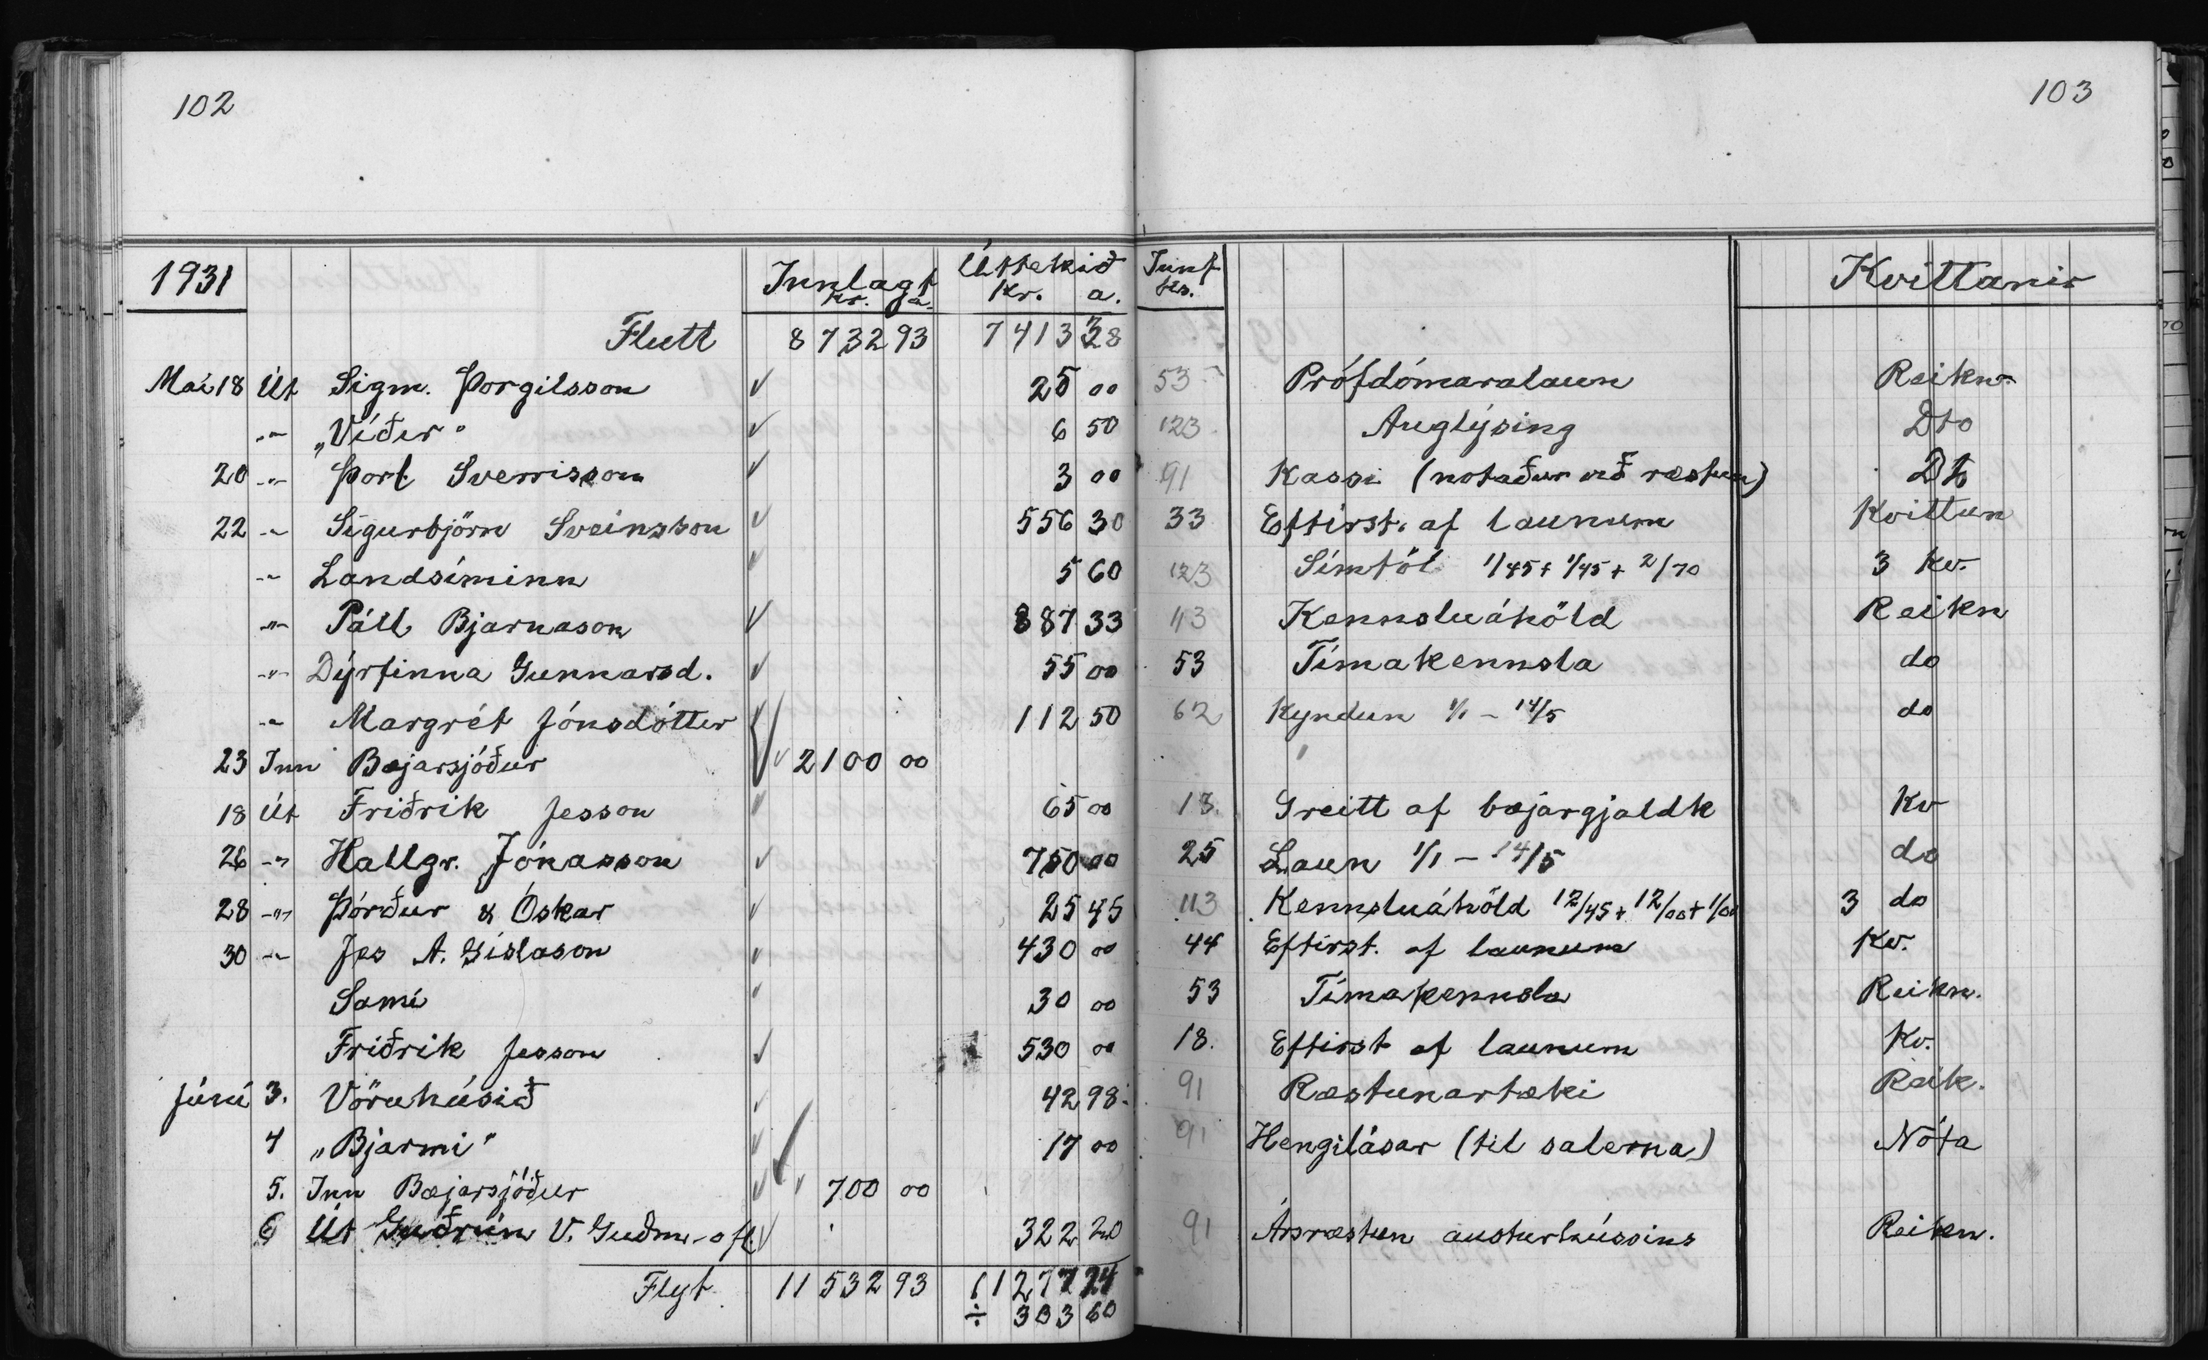 102
103
1931 Innlagt kr. a. Úttekið kr. a. Innf bls. Kvittanir
Flutt 8732 93 7413 38
Maí 18 Út Sigm. Þorgilsson 25 00 53 Prófdómaralaun Reikn.
-"- „Víðir" 6 50 123 Auglýsing Dto
20 -"- Þorl. Sverrisson 3 00 91 Kassi (notaður við ræstun) Dto
22 -"- Sigurbjörn Sveinsson 556 30 33 Eftirst. af launum Kvittun
-"- Landsíminn 5 60 123 Símtöl 1/45 + 1/45 + 2/70 3 kv.
-"- Páll Bjarnason 887 33 113 Kennsluáhöld Reikn
-"- Dýrfinna Gunnarsd. 55 00 53 Tímakennsla do
-"- Margrét Jónsdóttir 112 50 62 Kyndun 1/1 - 14/5 do
23 Inn Bæjarsjóður 2100 00
18 Út Friðrik Jesson 65 00 18. Greitt af bæjargjaldk kv
26 -"- Hallgr. Jónasson 750 00 25 Laun 1/1 - 14/5 do
28 -"- Þórður & Óskar 25 45 113 Kennsluáhöld 12/45 + 12/00 + 1/00 3 do
30 -"- Jes A. Gíslason 430 00 44 Eftirst. af launum Kv.
Sami 30 00 53 Tímakennsla Reikn.
Friðrik Jesson 530 00 18. Eftirst af launum Kv.
Júní 3. Vöruhúsið 42 98 91 Ræstunartæki Reik.
4 „Bjarmi" 17 00 91 Hengilásar (til salerna) Nóta
5. Inn Bæjarsjóður 700 00
6 Út Guðrún V. Guðm. ofl 322 20 91 Ársræstun austurhússins Reikn.
Flyt 11532 93 11277 24
÷ 303 60